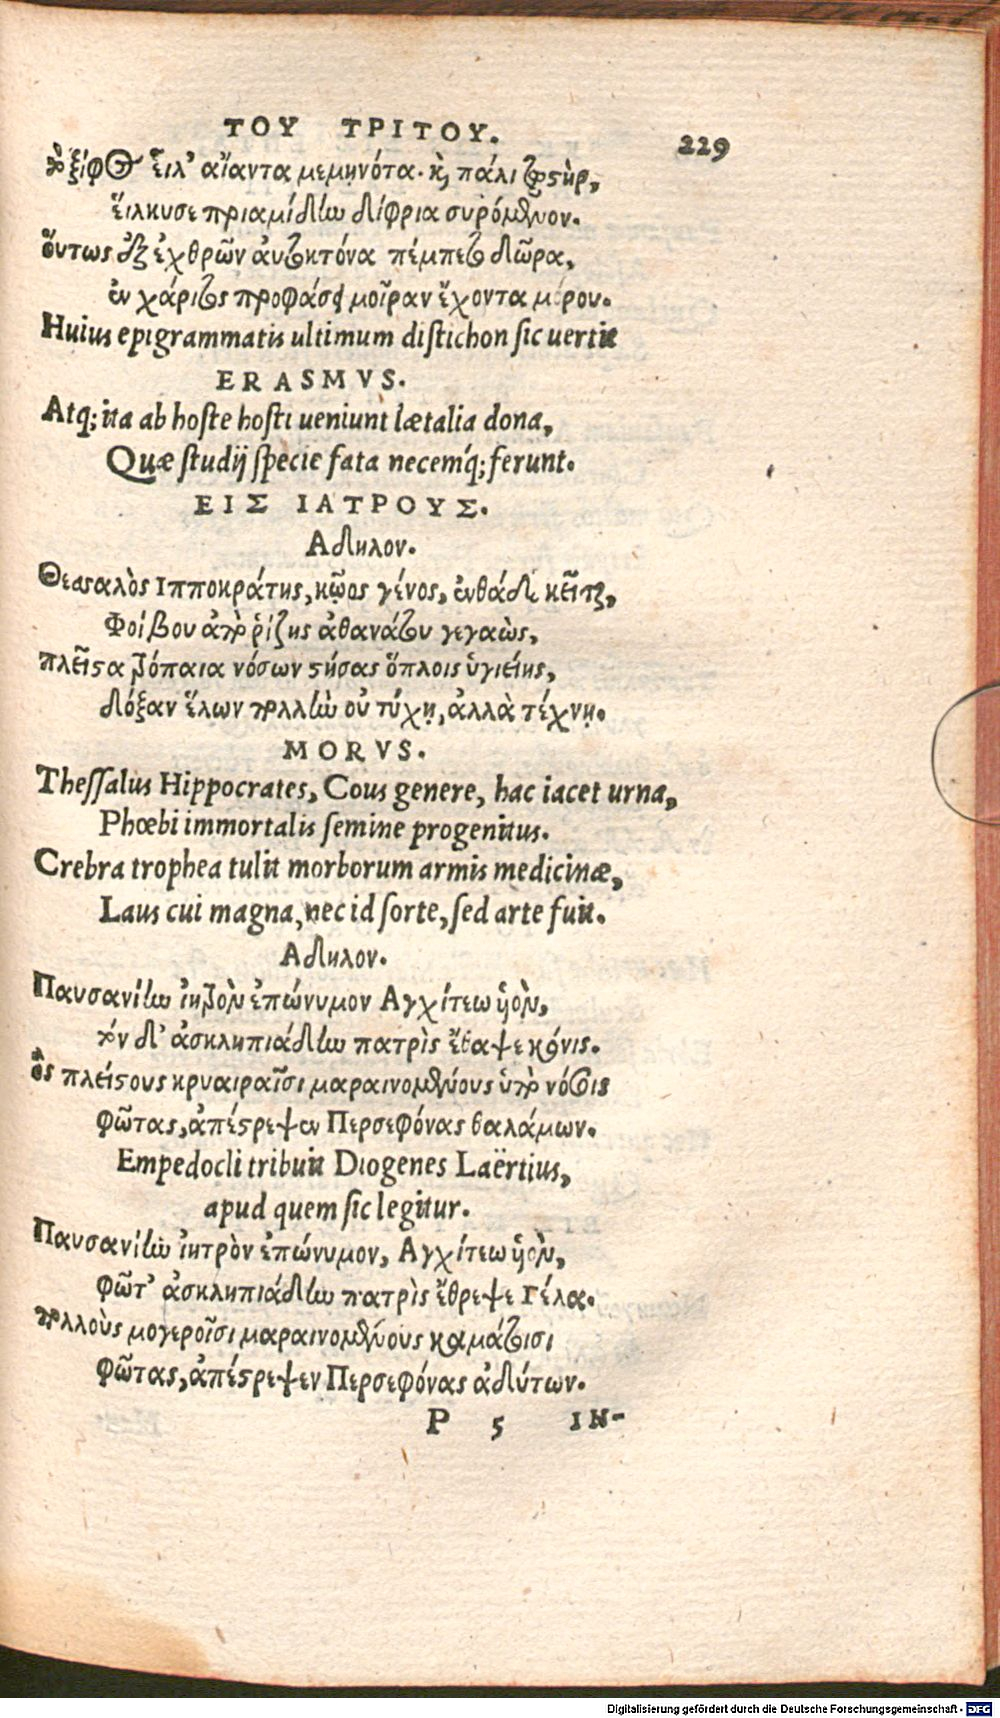 ΤΟΥ ΤΡΙΤΟΥ. 229
τὸ ξίφος εἷλ' αἴαντα μεμηνότα· καὶ πάλι ζωστὴρ,
εἵλκυσε πριαμίδην δίφρια συρόμενον.
οὕτως ἐξ ἐχθρῶν αὐτοκτόνα πέμπετο δῶρα,
ἐν χάριτος προφάσει μοῖραν ἔχοντα μόρου.
Huius epigrammatis ultimum distichon sic uertit
ERASMVS.
Atq; ita ab hoste hosti ueniunt lætalia dona,
Quæ studij specie fata necemq́; ferunt.
ΕΙΣ ΙΑΤΡΟΥΣ.
Αδηλον.
Θεσσαλὸς Ιπποκράτης, κῷος γένος, ἐνθάδε κεῖται,
Φοίβου ἀπὸ ῥίζης ἀθανάτου γεγαὼς,
πλεῖστα τρόπαια νόσων στήσας ὅπλοις ὑγιείης,
δόξαν ἕλων πολλὴν οὐ τύχῃ, ἀλλὰ τέχνῃ.
MORVS.
Thessalus Hippocrates, Cous genere, hac iacet urna,
Phœbi immortalis semine progenitus.
Crebra trophea tulit morborum armis medicinæ,
Laus cui magna, nec id sorte, sed arte fuit.
Αδηλον.
Παυσανίην ἰητρὸν ἐπώνυμον Αγχίτεω ὑὸν,
τόν δ' ἀσκληπιάδην πατρὶς ἔθαψε κόνις.
ὃς πλείστους κρυαιραῖσι μαραινομένους ὑπὸ νόσοις
φῶτας, ἀπέστρεψεν Περσεφόνας θαλάμων.
Empedocli tribuit Diogenes Laërtius,
apud quem sic legitur.
Παυσανίην ἰητρὸν ἐπώνυμον, Αγχίτεω ὑὸν,
φῶτ' ἀσκληπιάδην πατρὶς ἔθρεψε Γέλα.
πολλοὺς μογεροῖσι μαραινομένους καμάτοισι
φῶτας, ἀπέστρεψεν Περσεφόνας ἀδύτων.
P 5 IN-
Digitalisierung gefördert durch die Deutsche Forschungsgemeinschaft - DFG